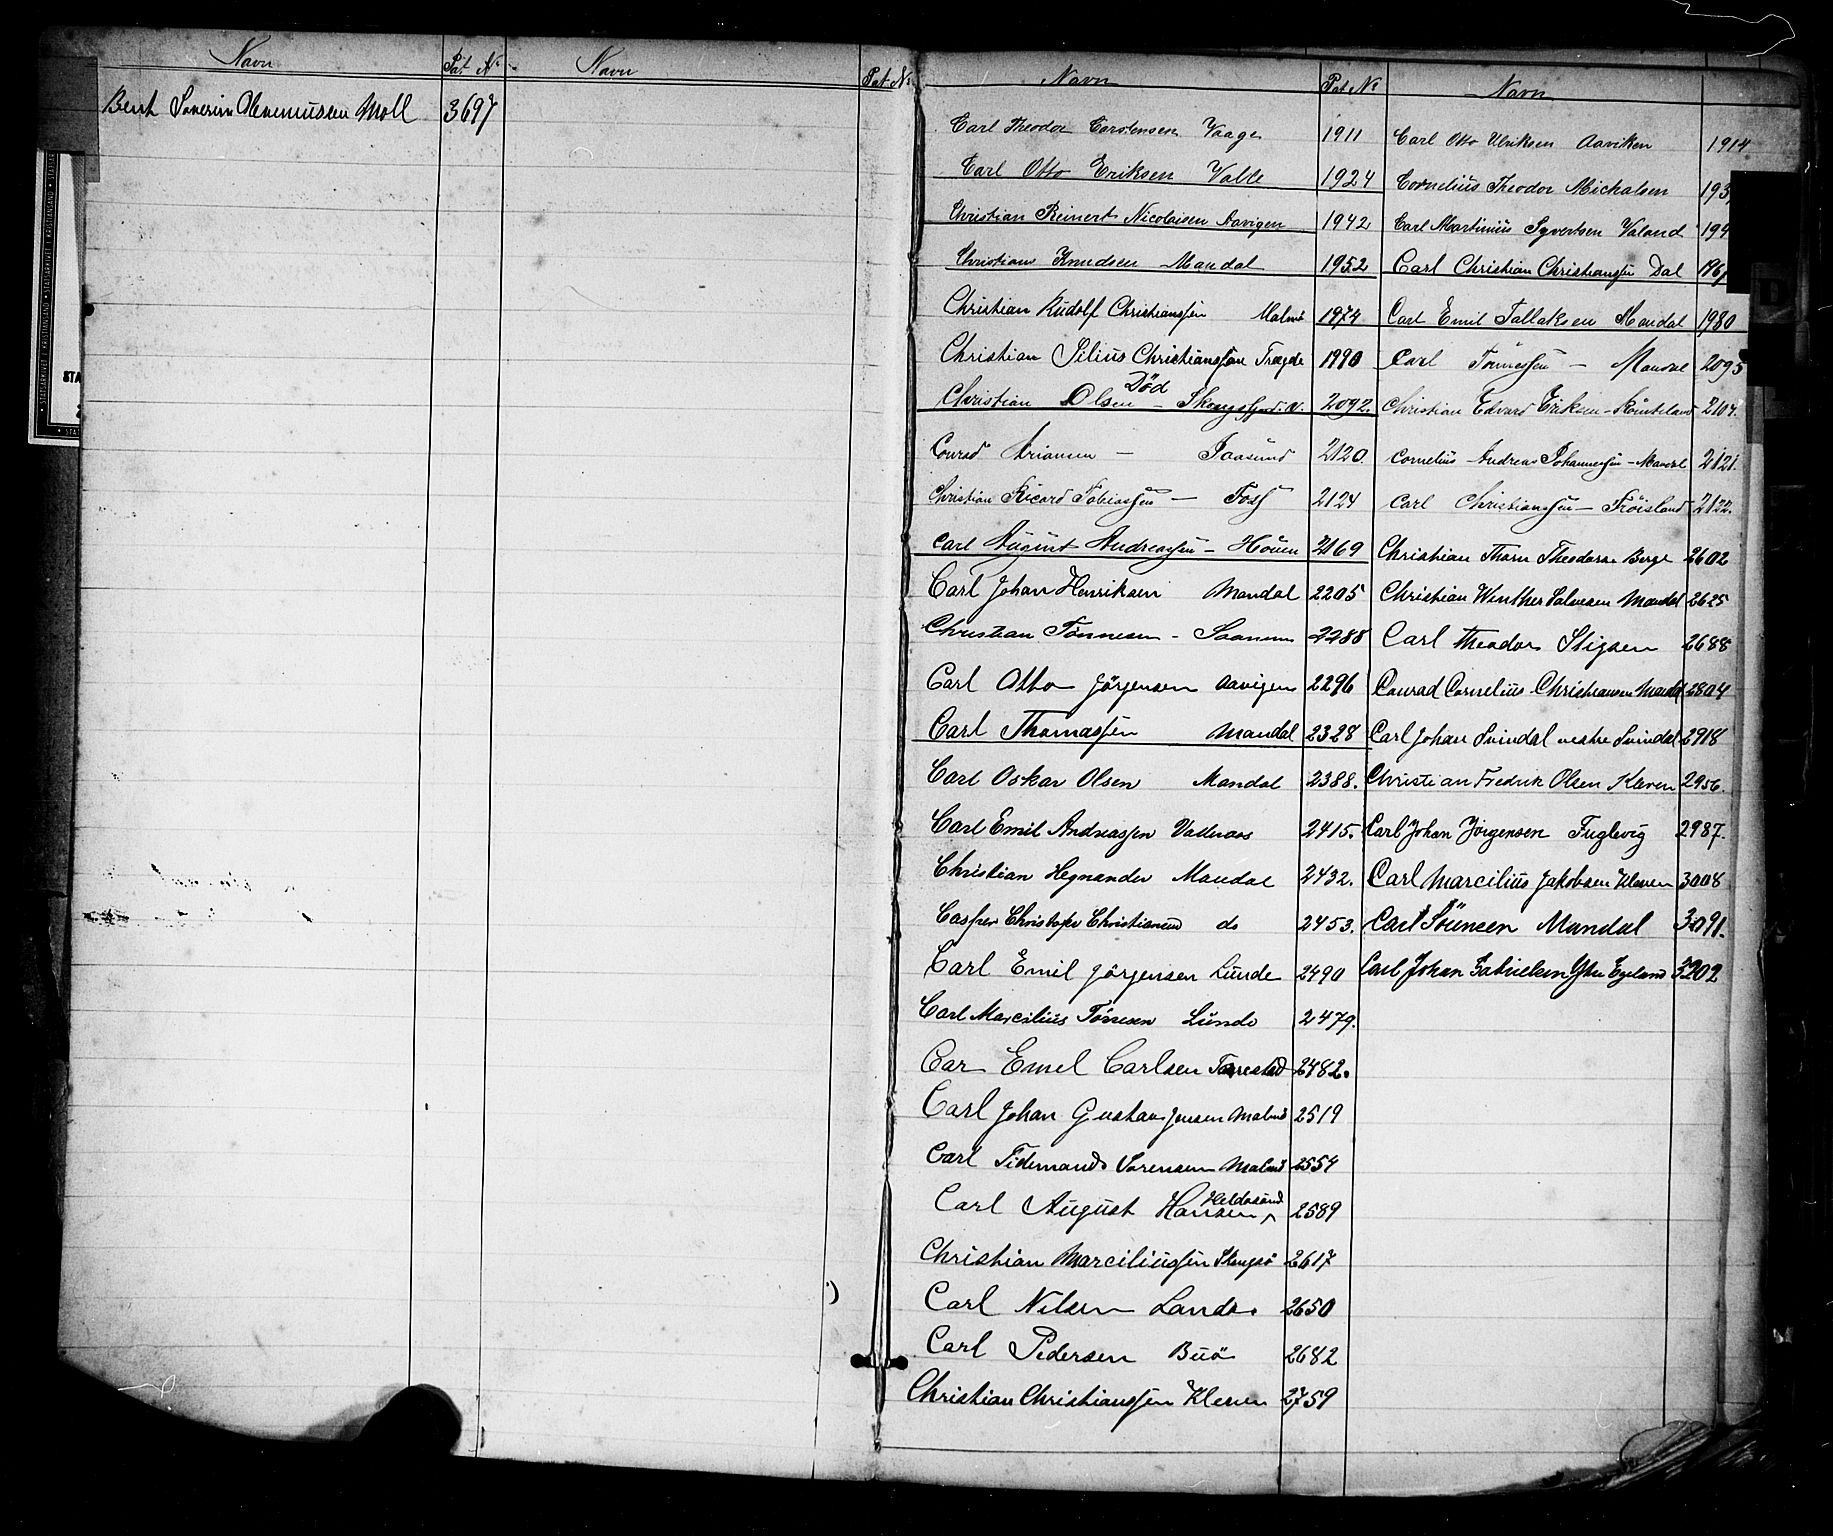 Navn Pat. No Navn Pat. No
Bent Severin Moll 3697
Navn Pat No
Carl Theodor Carstensen Vaage 1911
Carl Otto Eriksen Valle 1924
Christian Reinert Nicolaisen Aavigen 1942
Christian Knudsen Mandal 1952
Christian Rudolf Christianssen Malmö 1974
Christian Silius Christianssen Trægde 1990
Død
Christian Olsen - 2092.
Conrad Ariansen - 2120.
Christian Ricard Tobiassen - Foss 2124
Carl August Andreassen - Houen 2169
Carl Johan Henriksen Mandal 2205
Christian Tønnesen - Saanum 2288
Carl Otto Jörgensen Aavigen 2296
Carl Thomassen Mandal 2328
Carl Oskar Olsen Mandal 2388.
Carl Emil Andreassen 2415.
Christian Hegnander Mandal 2432.
Casper Christofer do 2453.
Carl Emil Jörgensen Lunde 2490
Carl Marcilius Tönnesen Lunde 2479.
Car Emel Carlsen 2482.
Carl Johan Gustav Jensen Malmö 2519
Carl Tidemands Sørensen Malmö 2554
Heldøsund
Carl August Hansen 2589
Christian Marciliussen 2617
Carl Nilsen Lande. 2650
Carl Pedersen Buö 2682
Christian Christianssen Kleven 2759
Navn
Carl Otto Ulriksen Aaviken 1914
Cornelius Theodor Michalsen 193
Carl Martinius Syvertsen Valand 194
Carl Christian Christianssen Dal 196
Carl Emil Tallaksen Mandal 1980
Carl Tönnessen - Mandal 2095
Christian Edvard Eriksen - 2104.
Cornelius Andreas Johannessen - Mandal 2121.
Carl Christianssen - Fröisland 2122.
Christian Thorn Theodorsen Berge 2602
Christian Winther Salvesen Mandal 2625
Carl Theodor Stigsen 2688
Conrad Cornelius Christiansen Mandal 2804
Carl Johan Svindal vestre Svindal 2918
Christian Fredrik Olsen Kleven 2956.
Carl Johan Jörgensen Fuglevig 2987.
Carl Marcilius Jakobsen Kleven 3008
Carl Sörensen Mandal 3091.
Carl Johan Gabrielsen Ytre Egeland 3202